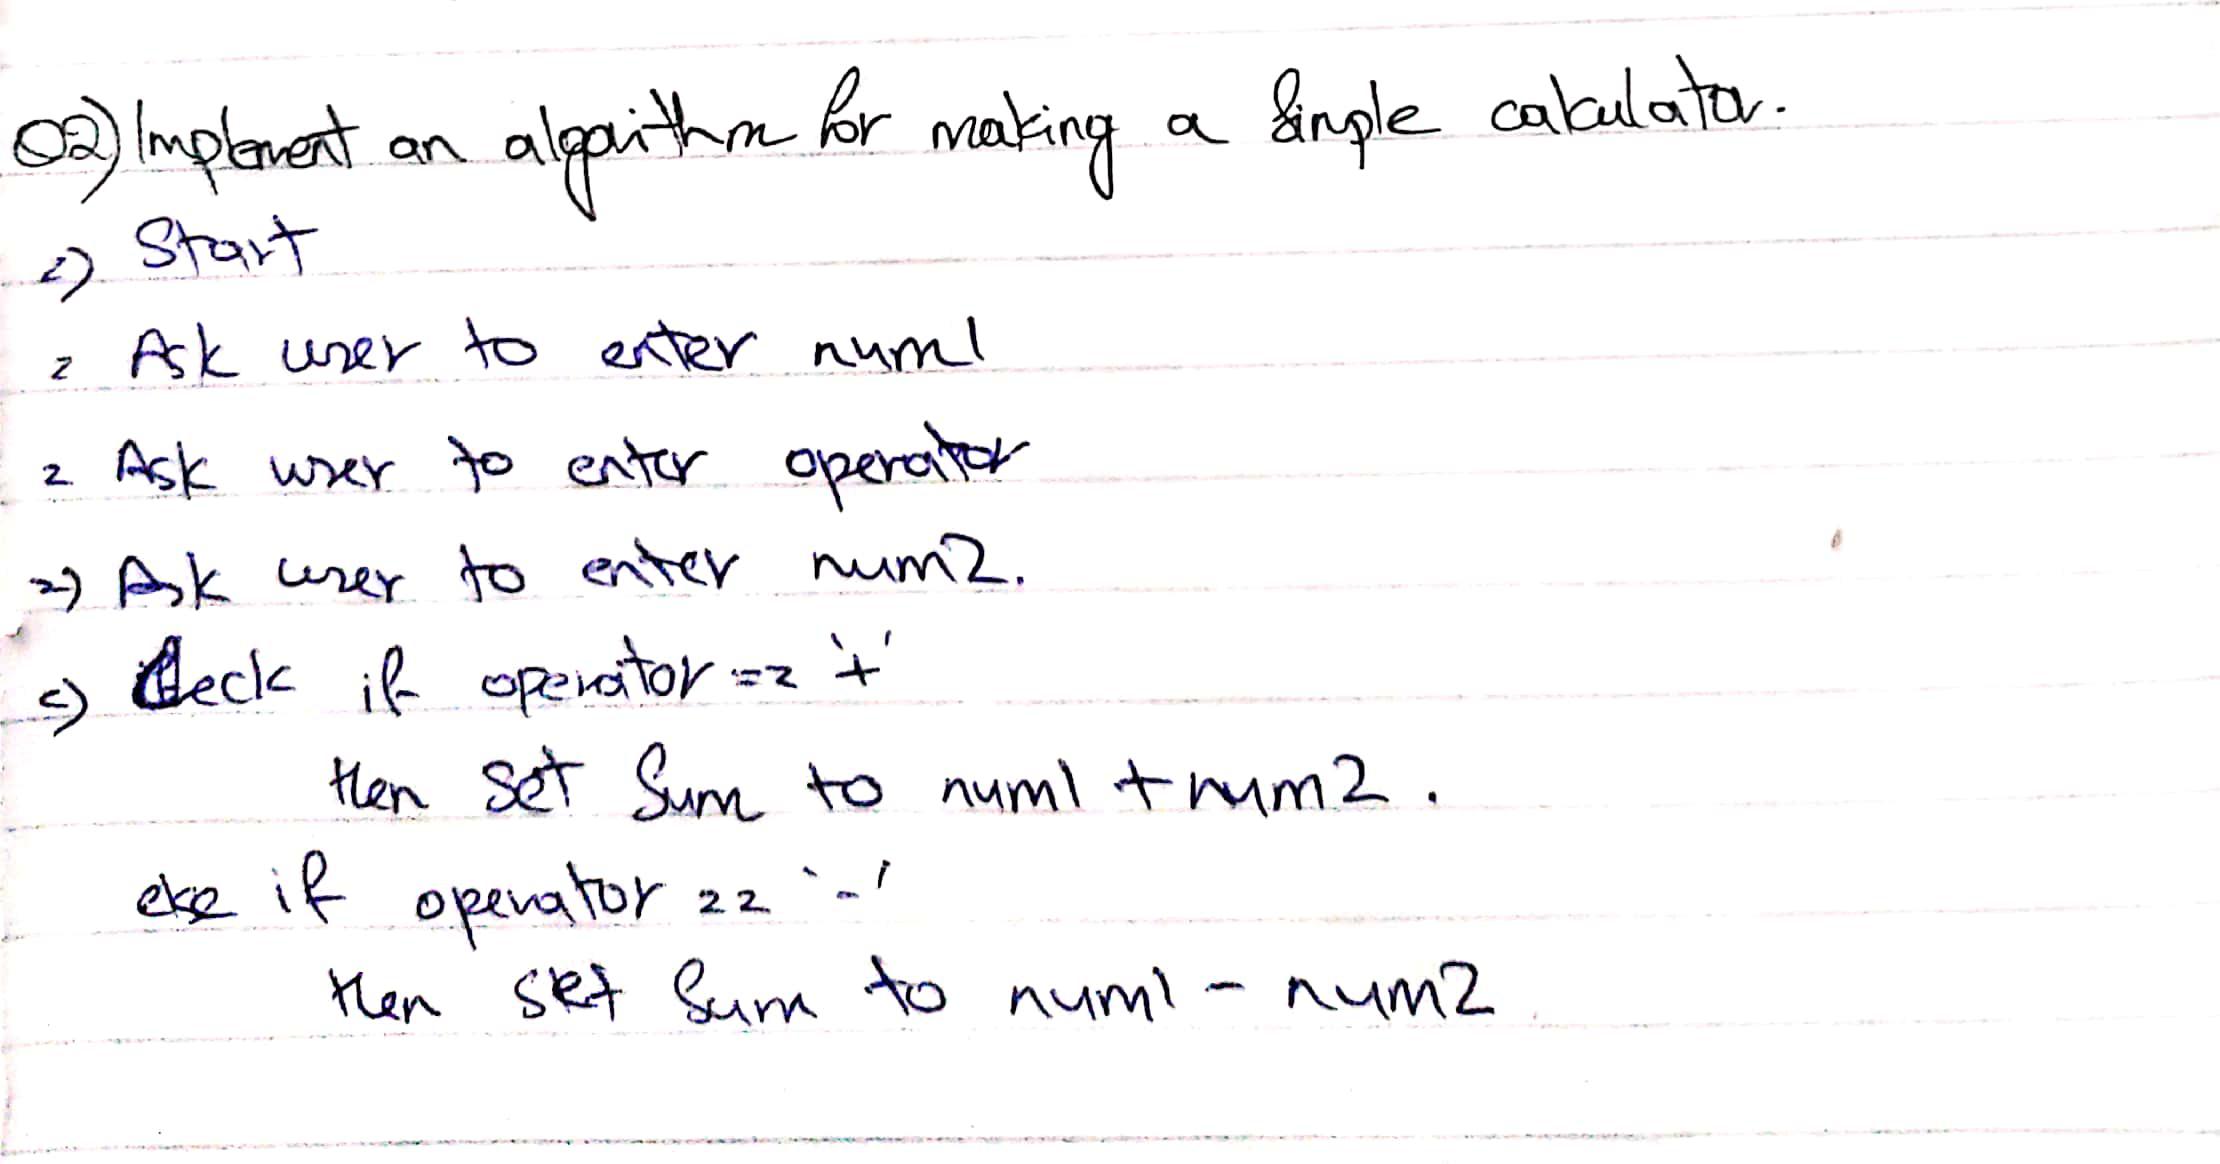 Q2) Implement an algorithm for making a simple calculator.
1) Start
2 Ask user to enter num1
2 Ask user to enter operator
2) Ask user to enter num2.
c) Check if operator == '+'
then set Sum to num1 + num2.
else if operator == '-'
then set Sum to num1 - num2